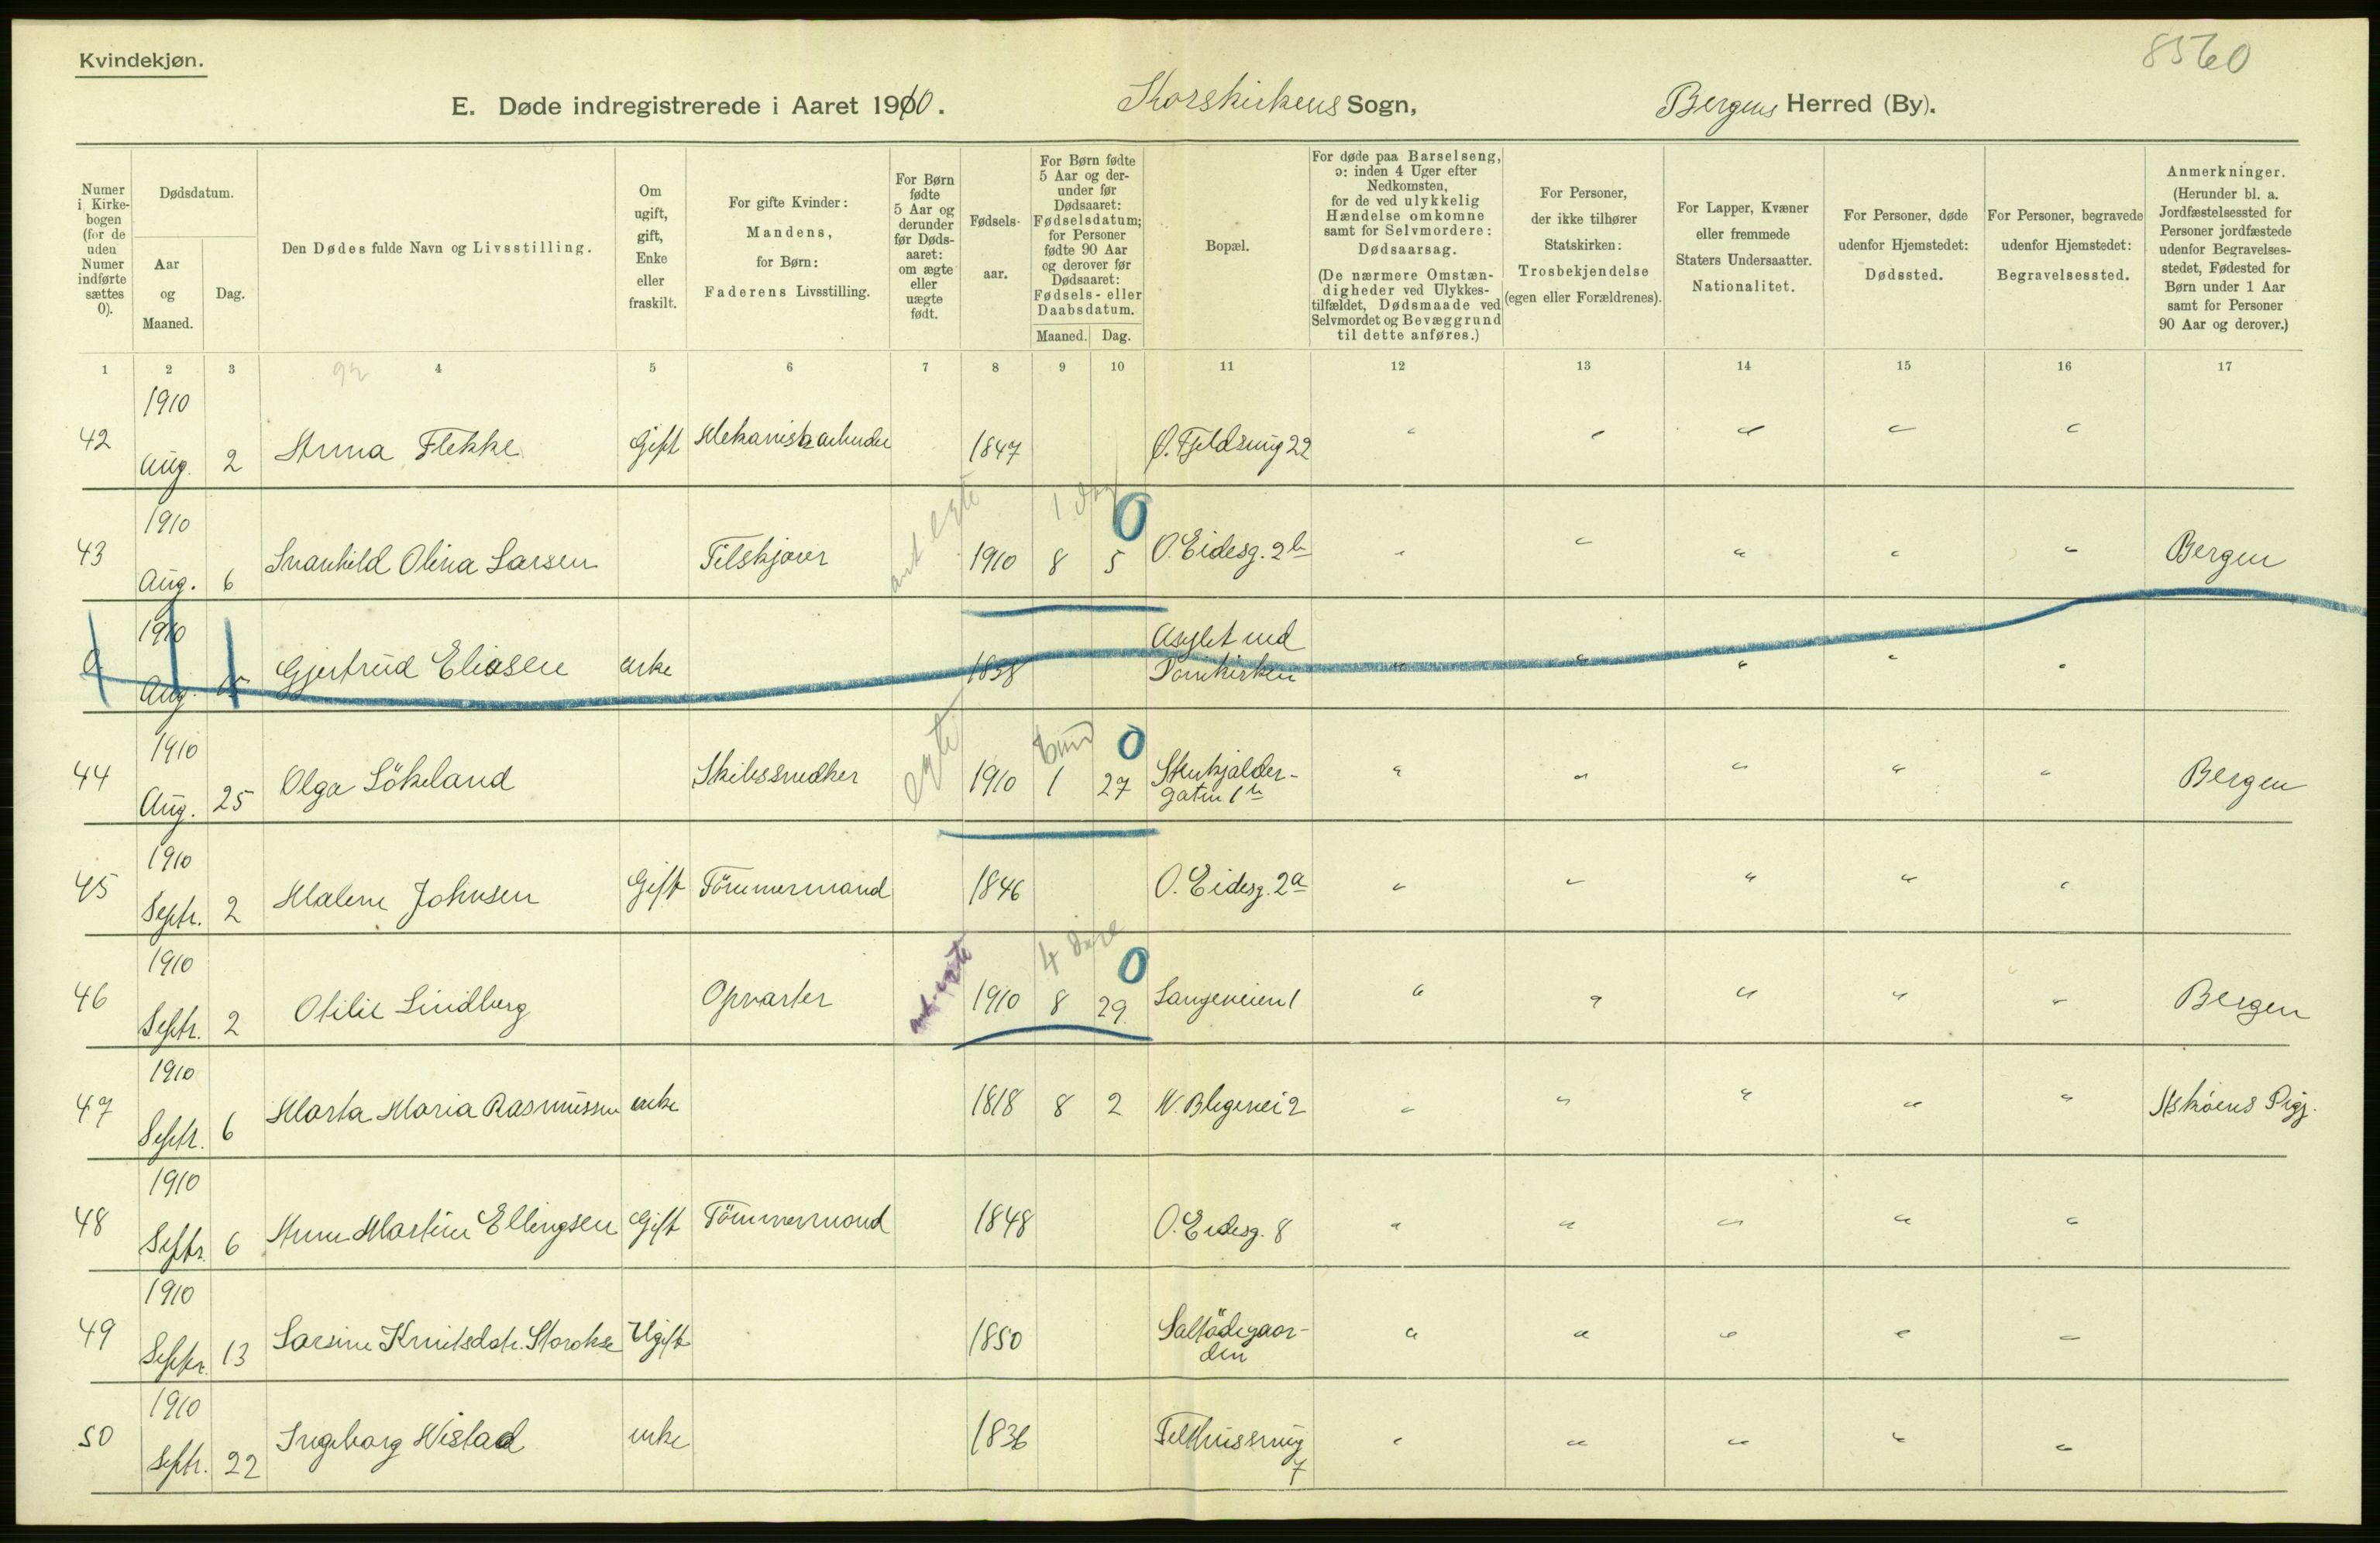 Kvindekjøn.
8560
E. Døde indregistrerede i Aaret 1910. Korskirkens Sogn, Bergens Herred (By).
Numer i Kirkebogen (for de uden Numer indførte sættes 0).
Dødsdatum.
Aar og Maaned.
Dag.
Den Dødes fulde Navn og Livsstilling.
Om ugift, gift, Enke eller fraskilt.
For gifte Kvinder: Mandens, for Børn: Faderens Livsstilling.
For Børn fødte 5 Aar og derunder før Dødsaaret: om ægte eller uægte født.
Fødselsaar.
For Børn fødte 5 Aar og derunder før Dødsaaret: Fødselsdatum; for Personer fødte 90 Aar og derover før Dødsaaret: Fødsels- eller Daabsdatum.
Maaned. Dag.
Bopæl.
For døde paa Barselseng, ɔ: inden 4 Uger efter Nedkomsten, for de ved ulykkelig Hændelse omkomne samt for Selvmordere: Dødsaarsag.
(De nærmere Omstændigheder ved Ulykkestilfældet, Dødsmaade ved Selvmordet og Bevæggrund til dette anføres.)
For Personer, der ikke tilhører Statskirken: Trosbekjendelse (egen eller Forældrenes).
For Lapper, Kvæner eller fremmede Staters Undersaatter. Nationalitet.
For Personer, døde udenfor Hjemstedet: Dødssted.
For Personer, begravede udenfor Hjemstedet: Begravelsessted.
Anmerkninger.
(Herunder bl. a. Jordfæstelsessted for Personer jordfæstede udenfor Begravelsesstedet, Fødested for Børn under 1 Aar samt for Personer 90 Aar og derover.)
1 2 3 4 5 6 7 8 9 10 11 12 13 14 15 16 17
92
1910
42 Aug. 2 Anna Flekke Gift Mekanisk arbeider 1847 Ø. Fjeldsmug 22 " " " " "
1910 1 Dag 0
43 Aug. 6 Svanhild Olina Larsen Filskjærer ant egte 1910 8 5 O. Eidesg. 2b " " " " " Bergen
1910 Asylet ved
0 Aug. 15 Gjertrud Eliasen enke 1838 Domkirken " " " " "
1910 0
44 Aug. 25 Olga Sökeland Skibssmedker egte 1910 1 27 Stenkjelder- " " " " " Bergen
gaten 1b
1910
45 Septr. 2 Malene Johnsen Gift Tömmermand 1846 O. Eidesg. 2a " " " " "
1910 4 Dage 0
46 Septr. 2 Otilie Lindberg Opvarter ant. egte 1910 8 29 Langeveien 1 " " " " " Bergen
1910
47 Septr. 6 Marta Maria Rasmussen enke 1818 8 2 N. Blegevei 2 " " " " " Askøens Prgj.
1910
48 Septr. 6 Anne Martine Ellingsen Gift Tömmermand 1848 O. Eidesg. 8 " " " " "
1910
49 Septr. 13 Larsine Knutsdatr. Storokse Ugift 1850 Saltödegaar- " " " " "
den
1910
50 Septr. 22 Ingeborg Wistad enke 1836 " " " " "
7